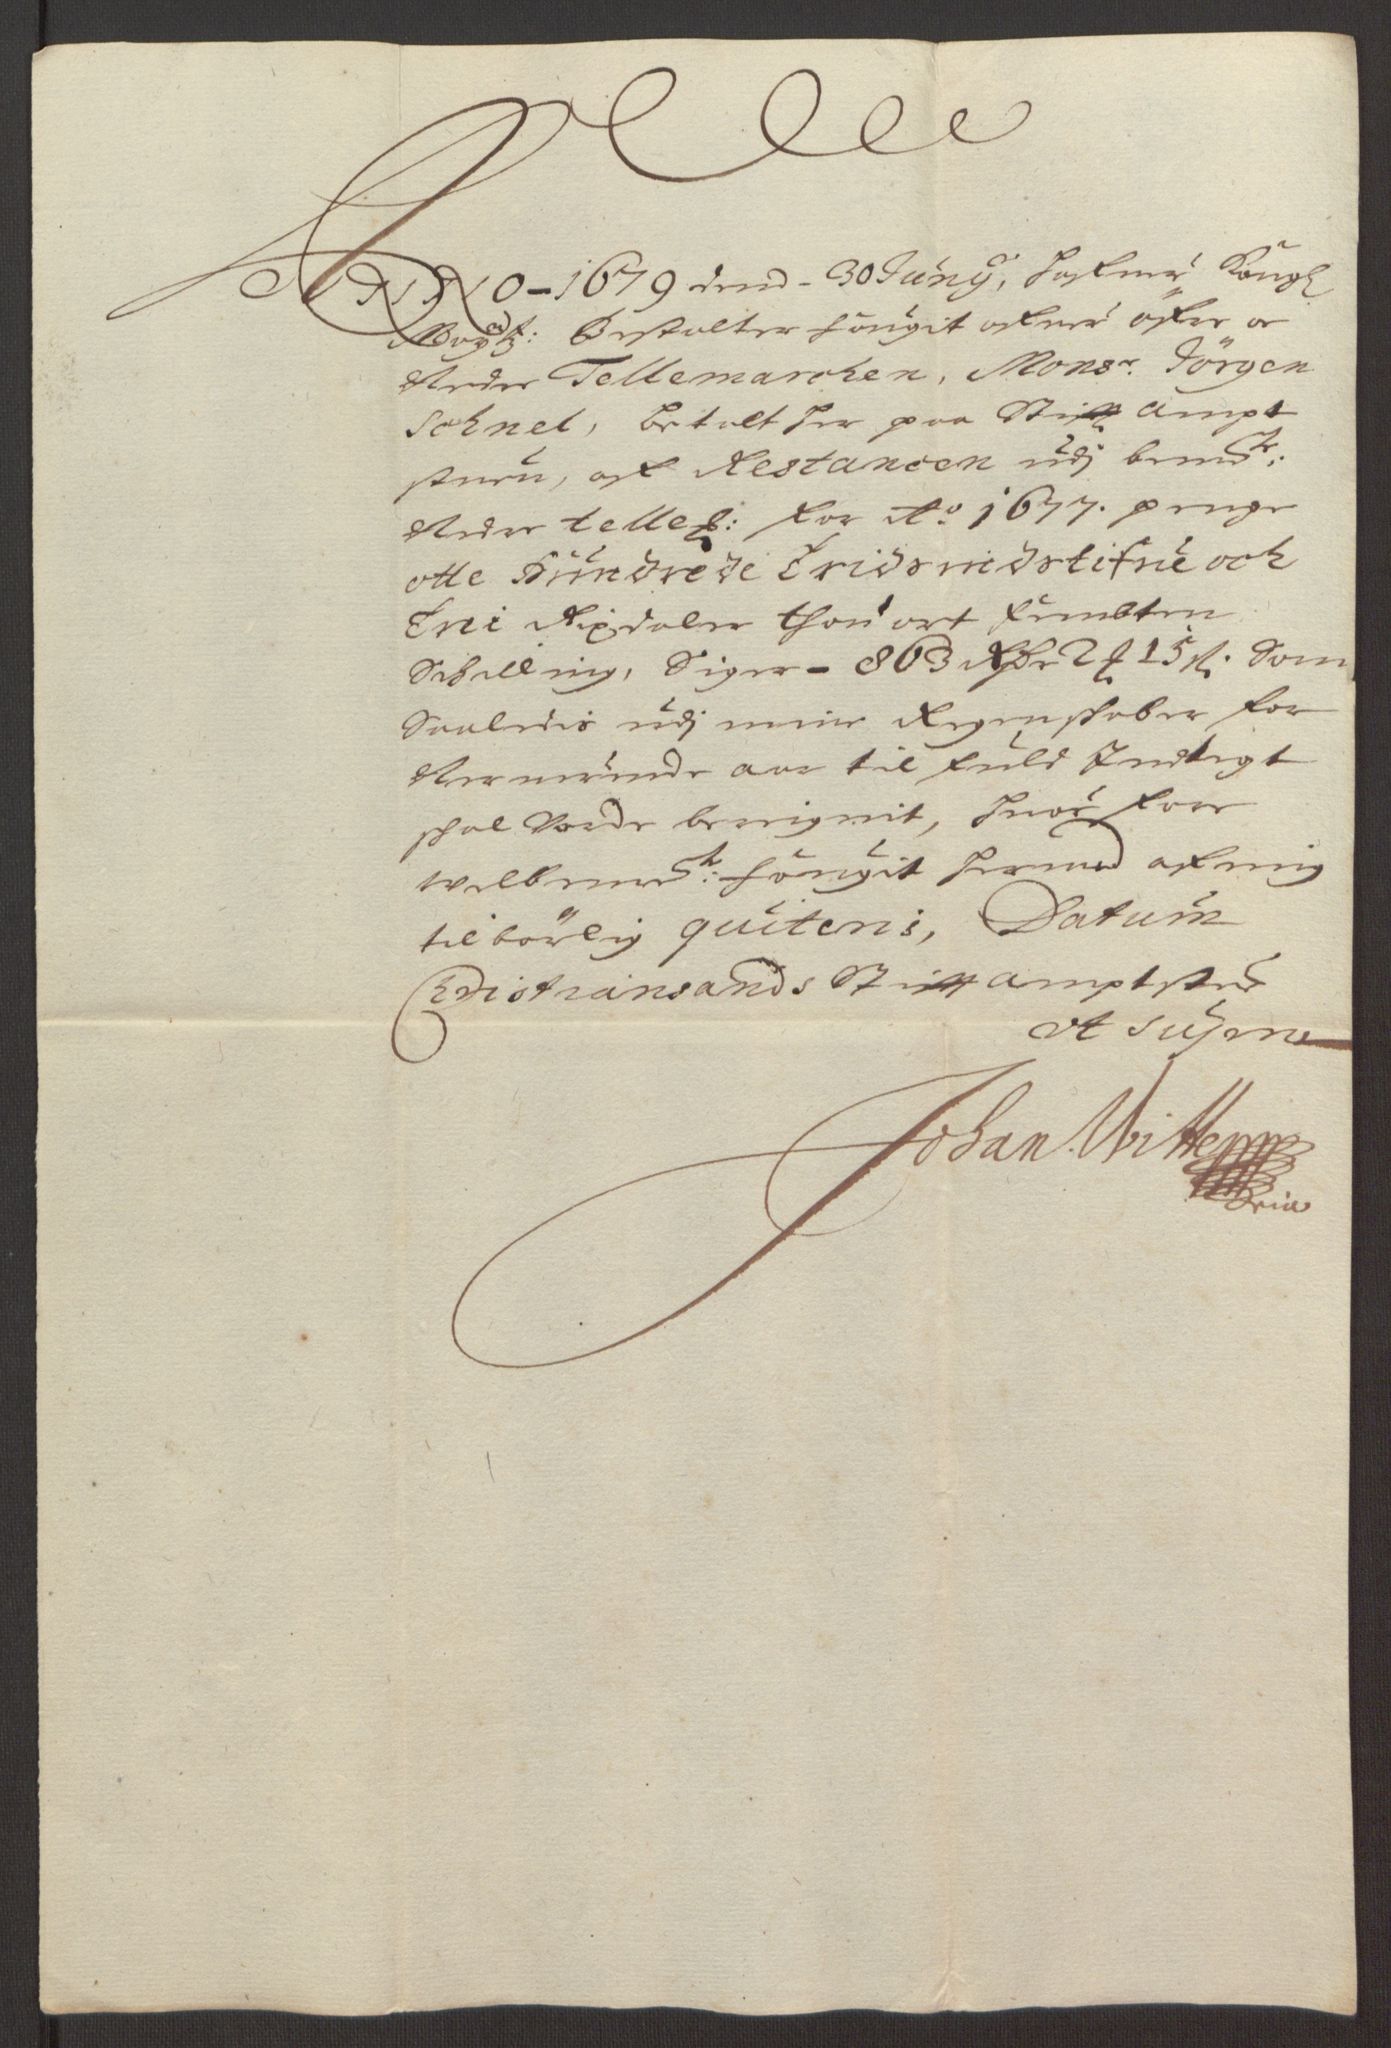 ANNO – 1679 dend – 30 Junÿ, hafuer Kongl
Maÿtz: Bestalter fougit ofuer öfre
Nedre Tellemarchen, Mons.r Jörgen
Schnel, betalt her paa Stifft ampt
stuen, aff Restancen udj bemte:
Nedre telleß: for Ao. 1677. penge
otte Hundrede Tridsindstifue och
Trei Rixdaler thou ort fembten
Schelling, Siger – 863 Rdr 2 15 ß. Som
Saaledis udj mine Regenschaber for
Neruerende aar til fuld Indtegt
schal Vorde bereignit, huor fore
welbemte: fougit hermed af mig
tilbörlig quiteris, Datum
Christiansands Stifft amptstue
Johan Witte